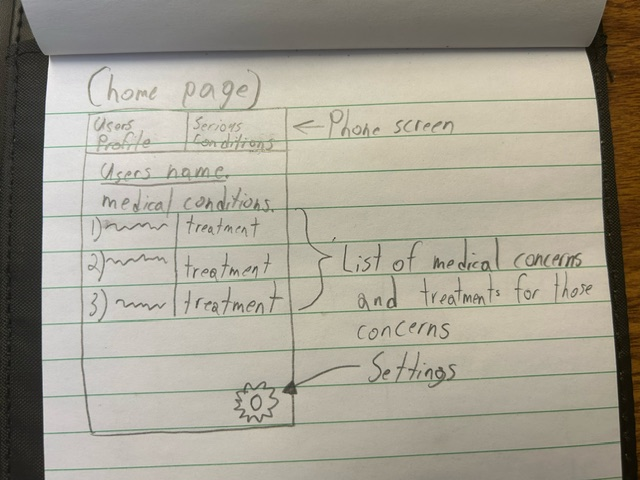 (home page)
Users Profile
Serious Conditions
← Phone screen
Users name.
medical conditions.
1) treatment
2) treatment
3) treatment
List of medical concerns
and treatments for those
concerns
Settings